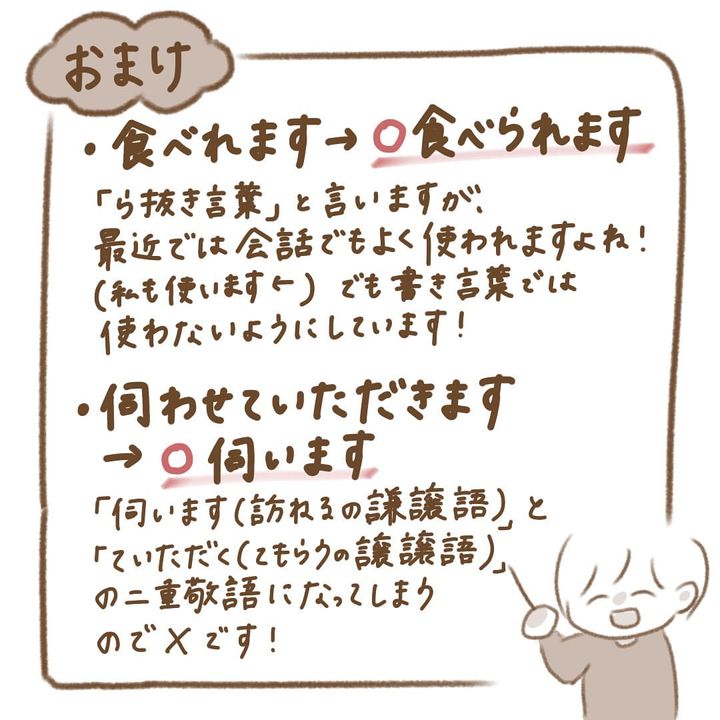 おまけ
・食べれます→○食べられます
「ら抜き言葉」と言いますが、
最近では会話でもよく使われますよね！
(私も使います←) でも書き言葉では
使わないようにしています！
・伺わせていただきます
→○伺います
「伺います(訪ねるの謙譲語)」と
「ていただく(てもらうの譲譲語)」
の二重敬語になってしまう
ので×です！